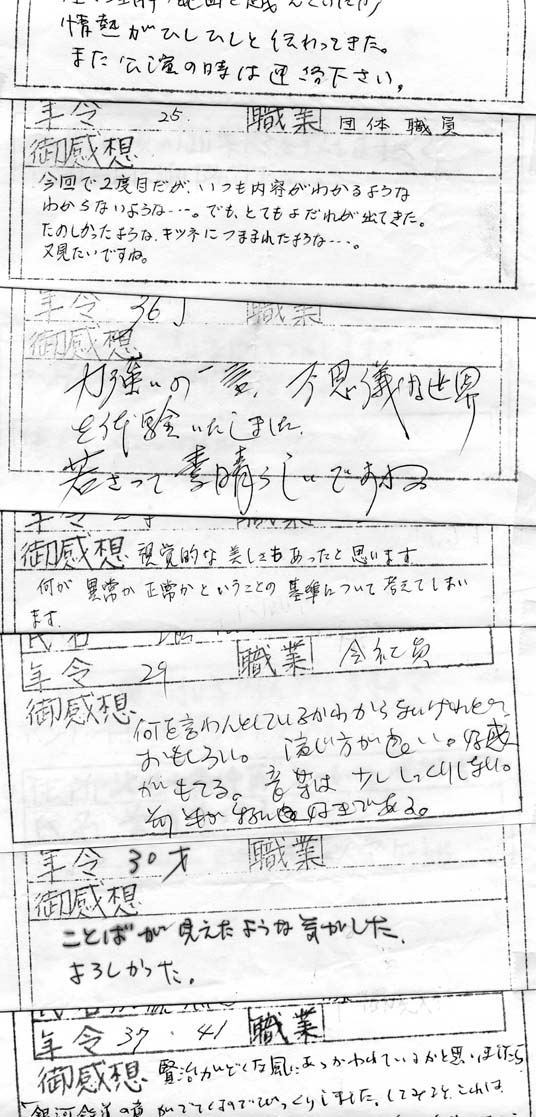 情熱がひしひしと伝わってきた。
また公演の時は連絡下さい。
年令 25. 職業 団体職員
御感想
今回で2度目だが、いつも内容がわかるような
わからないような…。でも、とてもよだれが出てきた。
たのしかったような、キツネにつままれたような…。
又見たいですね。
年令 36才 職業
御感想
力強いの一言、不思議な世界
を体験いたしました。
若さって素晴らしいですね
年令 職業
御感想 視覚的な美しさもあったと思います
何が異常か正常かということの基準について考えてしまい
ます.
年令 29 職業 会社員
御感想
何を言わんとしているかわからないけれども、
おもしろい。演じ方が良い。好感
がもてる。音楽は少ししっくりしない。
好きである。
年令 30才 職業
御感想
ことばが見えたような気がした、
よろしかった。
年令 37.41 職業
御感想 賢治がどんな風にあつかわれているかと思いましたら
銀河鉄道の えがでてくるのでびっくりしました。してみると、これは